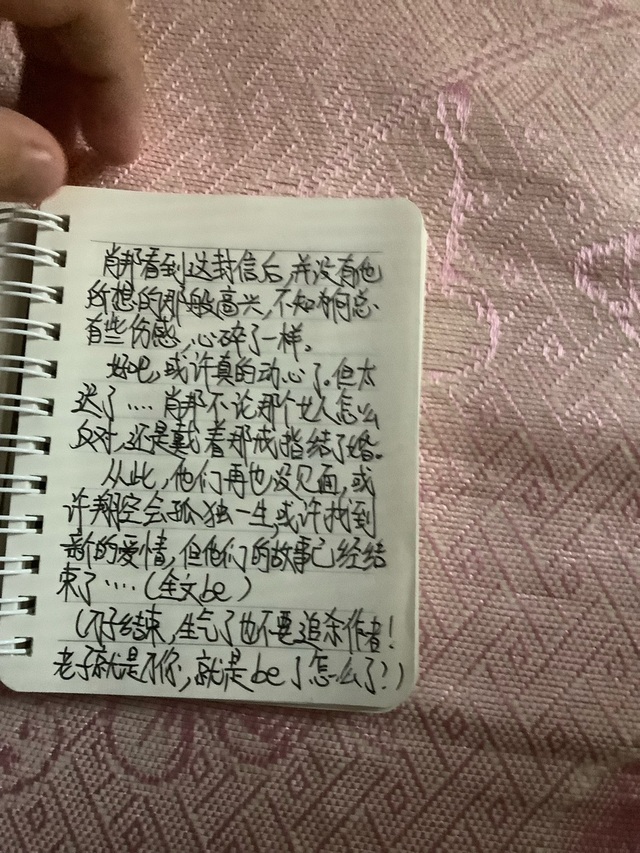 肖邦看到这封信后,并没有他
所想的那般高兴,不知为何总
有些伤感,心碎了一样。
好吧,或许真的动心了。但太
迟了....肖邦不论那个女人怎么
反对,还是戴着那戒指结了婚。
从此,他们再也没见面,或
许翔空会孤独一生,或许找到
新的爱情,但他们的故事已经结
束了....(全文be)
结束,生气了也不要追杀作者!
老子就是,就是be了怎么了?)